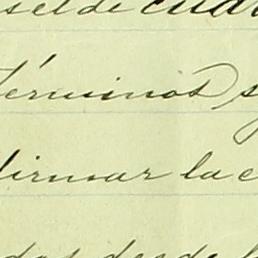 sel de cuar
términos s
firmar la c
dos desde l